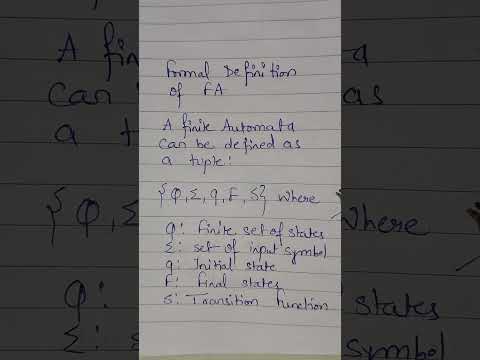 Formal Definition
of FA
A finite Automata
can be defined as
a tuple:
{Q, Σ, q, F, δ} where
Q: finite set of states
Σ: set of input symbol
q: Initial state
F: final states
δ: Transition function